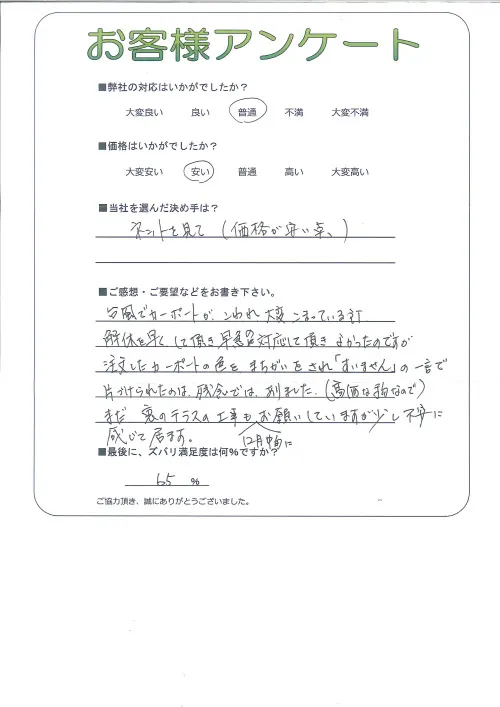 お客様アンケート
■弊社の対応はいかがでしたか？
大変良い 良い 普通 不満 大変不満
■価格はいかがでしたか？
大変安い 安い 普通 高い 大変高い
■当社を選んだ決め手は？
ネットを見て（価格が安い点、）
■ご感想・ご要望などをお書き下さい。
台風でカーポートが、こわれ大変こまっている時
解体を早くして頂き早急な対応して頂きよかったのですが
注文したカーポートの色をまちがいをされ「すいません」の一言で
片づけられたのは、残念では、ありました。（高価な物なので）
まだ裏のテラスの工事もお願いしていますが少し不安に
感じて居ます。 12月中旬に
■最後に、ズバリ満足度は何％ですか？
65 ％
ご協力頂き、誠にありがとうございました。